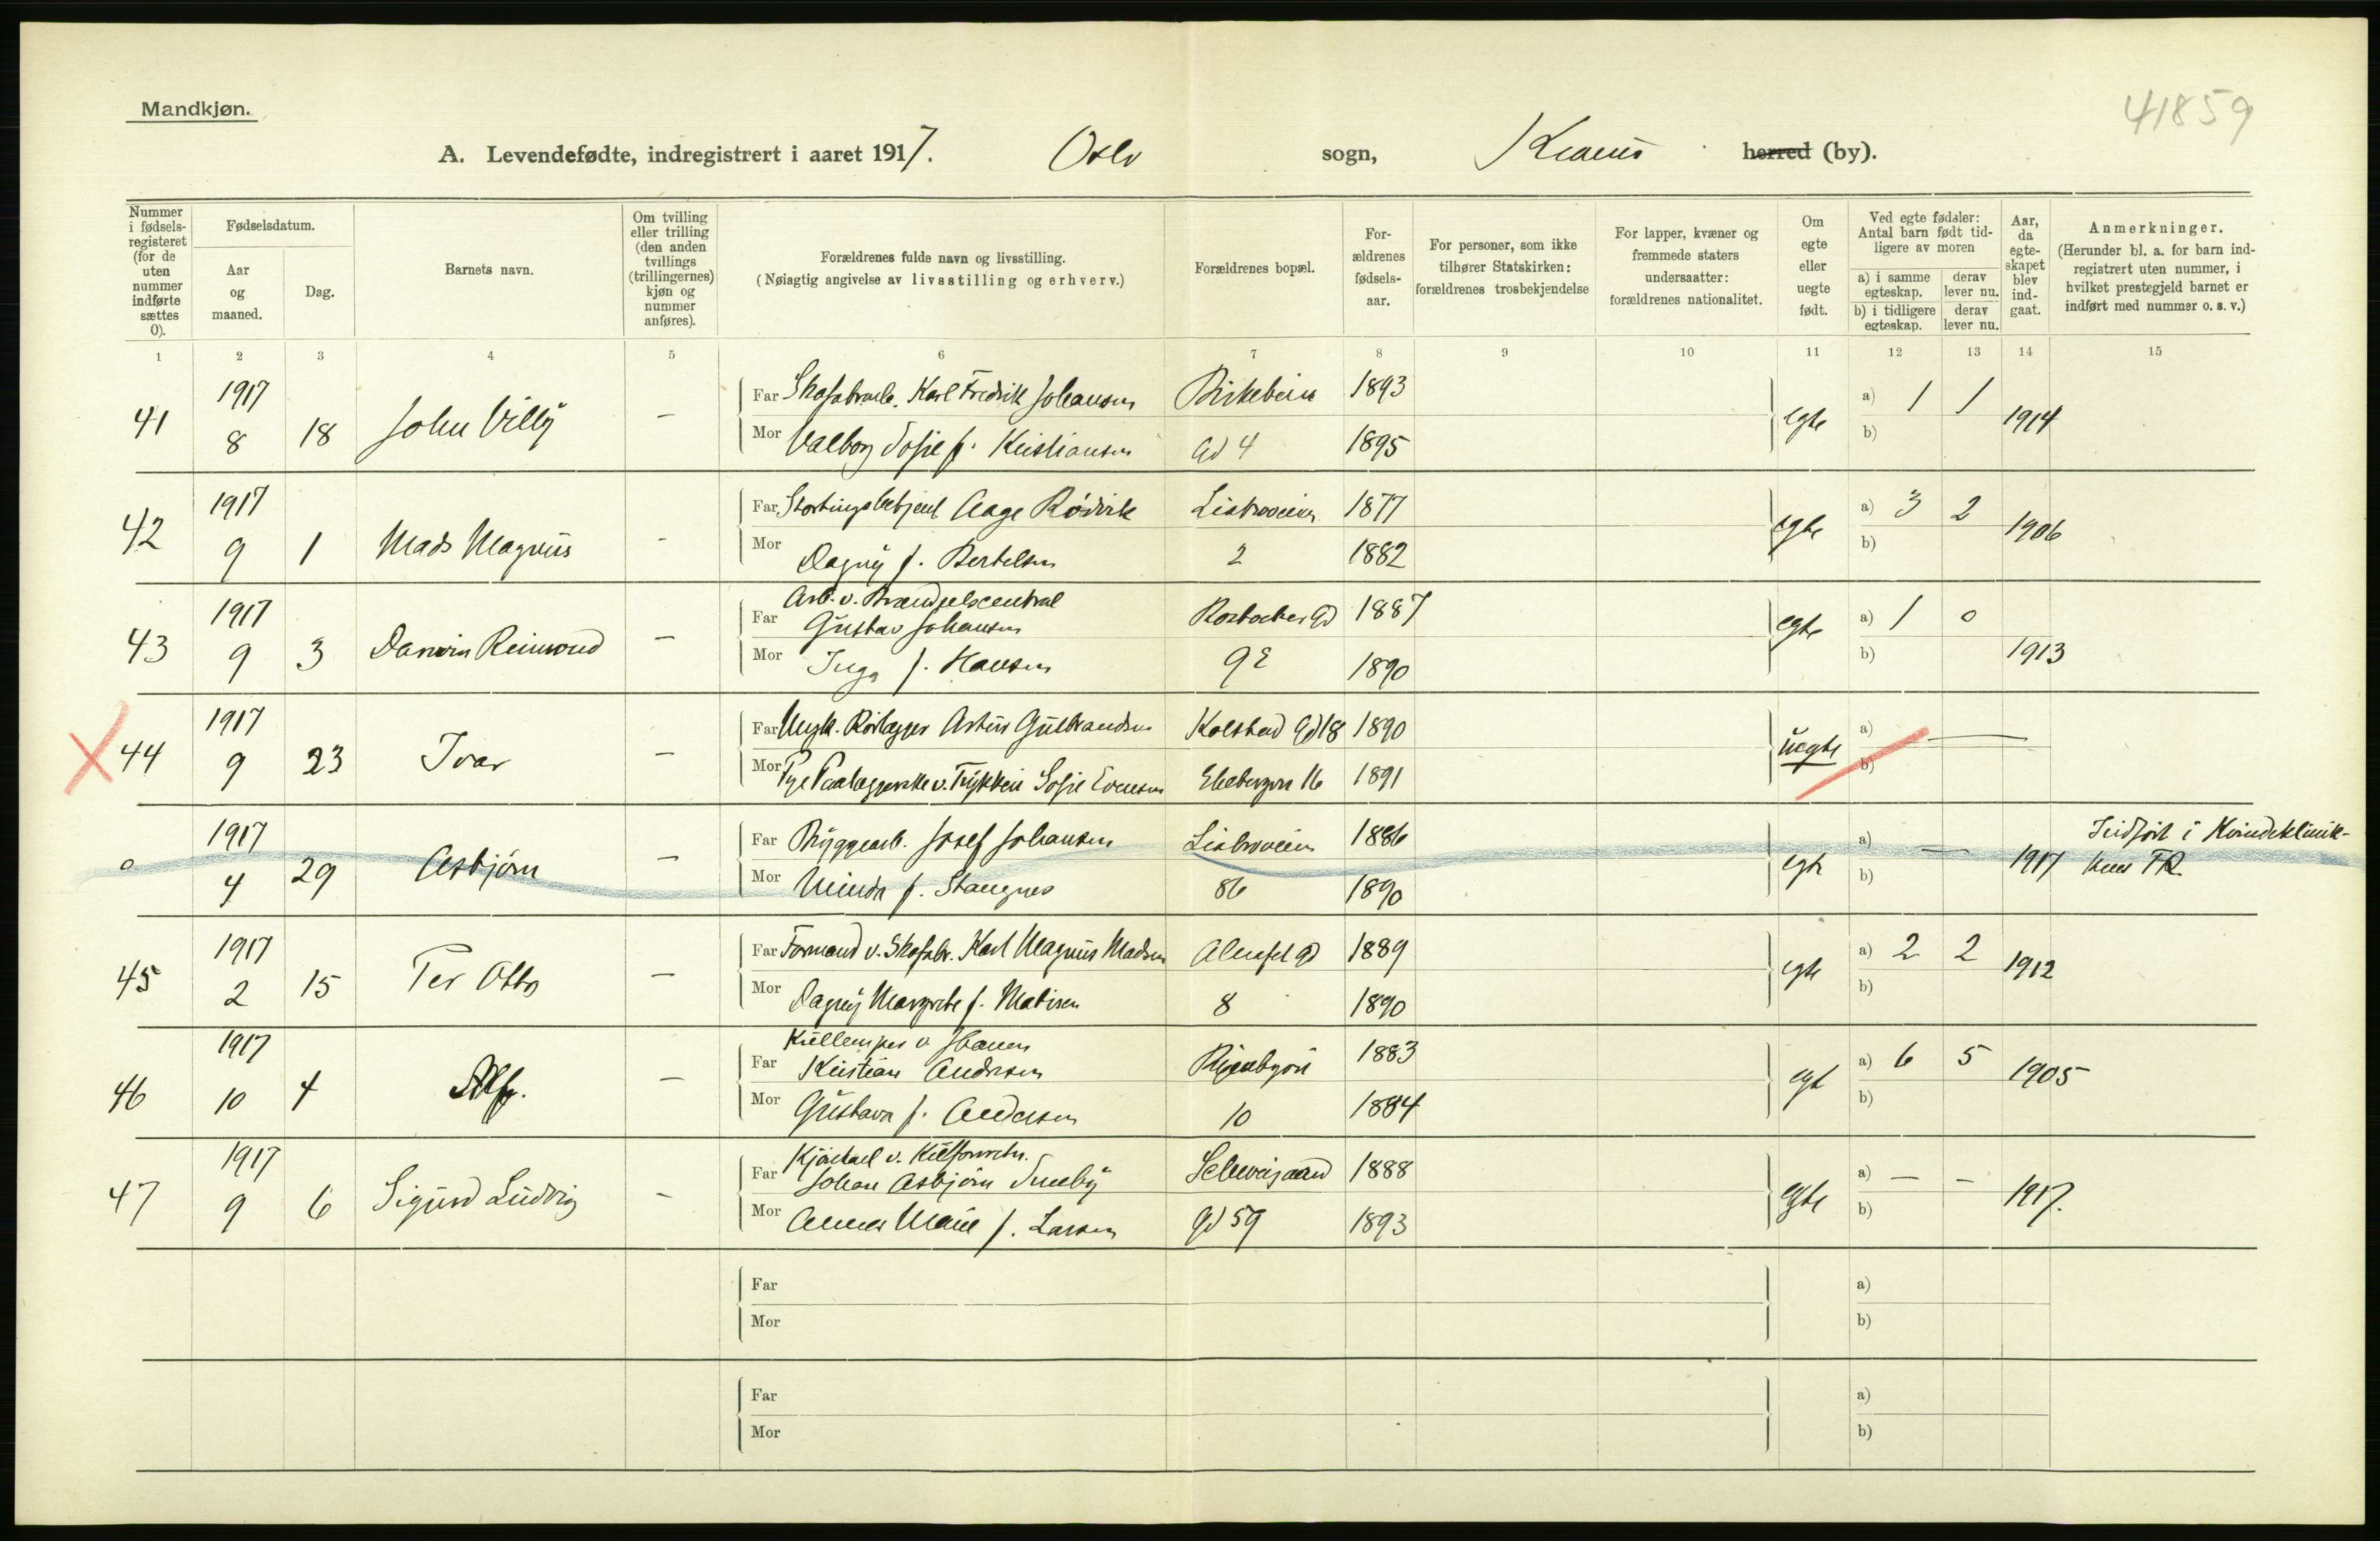 41859
Mandkjøn.
A. Levendefødte, indregistrert i aaret 1917. Oslo sogn, Krania herred (by).
Nummer i fødsels-registeret (for de uten nummer indførte sættes 0).
Fødselsdatum.
Aar og maaned.
Dag.
Barnets navn.
Om tvilling eller trilling (den anden tvillings (trillingernes) kjøn og nummer anføres).
Forældrenes fulde navn og livsstilling.
(Nøiagtig angivelse av livsstilling og erhverv.)
Forældrenes bopæl.
For-ældrenes fødsels-aar.
For personer, som ikke tilhører Statskirken: forældrenes trosbekjendelse
For lapper, kvæner og fremmede staters undersaatter: forældrenes nationalitet.
Om egte eller uegte født.
Ved egte fødsler: Antal barn født tid-ligere av moren
a) i samme egteskap.
derav lever nu.
b) i tidligere egteskap.
derav lever nu.
Aar, da egte-skapet blev ind-gaat.
Anmerkninger.
(Herunder bl. a. for barn ind-registrert uten nummer, i hvilket prestegjeld barnet er indført med nummer o. s. v.)
1 2 3 4 5 6 7 8 9 10 11 12 13 14 15
1917 Far Skofabrarb. Karl Fredrik Johansen Birkebein 1893 a) 1 1
41 8 18 John Villy — egte 1914
Mor Valborg Sofie f. Kristiansen gd 4 1895 b)
1917 Far Stortingsbetjent Aage Rödvik Liabroveien 1877 a) 3 2
42 9 1 Mads Magnus - egte 1906
Mor Dagny f. Bertelsen 2 1882 b)
Arb. v. Brændselscentral
1917 Far Gustav Johansen Rosbachs gd 1887 a) 1 0
43 9 3 Darwin Reimond — egte 1913
Mor Inga f. Hansen 9 E 1890 b)
1917 Far Ungk. Rörlægger Artur Gulbrandsen Kolstad gd 18 1890 a)
X 44 9 23 Ivar — uegte —
Mor Pge Paalæggerske v. Trykkeri Sofie Evensen Ekebergvn 16 1891 b)
1917 Far Bryggearb. Josef Johansen Liabroveien 1886 a) Indfört i Kvindeklinik-
0 4 29 Asbjörn — egte — 1917
Mor f. Stangnes 86 1890 b)
1917 Far Formand v. Skofabr. Karl Magnus Madsen Almefel gd 1889 a) 2 2
45 2 15 Per Otto — egte 1912
Mor Dagny Margrete f. Matisen 8 1890 b)
Kullemper v. Sbanen
1917 Far Kristian Andersen 1883 a) 6 5
46 10 4 Alf. — egt 1905
Mor Gustava f. Andersen 10 1884 b)
Kjörekarl v. Kulforretn.
1917 Far Johan Asbjörn Smeby Schweigaard 1888 a) — -
47 9 6 Sigurd Ludvig - egte 1917.
Mor Anna Marie f. Larsen gd 59 1893 b)
Far a)
Mor b)
Far a)
Mor b)